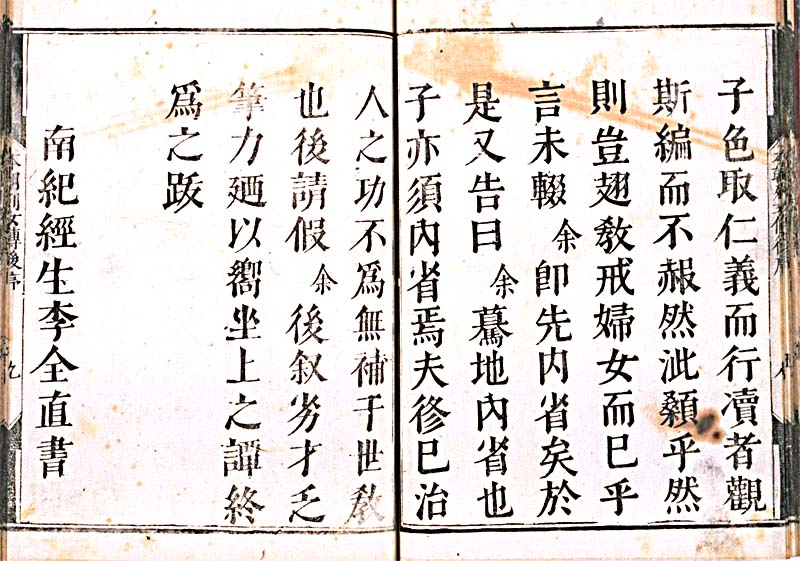 子色取仁義而行凟者觀
斯編而不赧然泚顙乎然
則豈翅敎戒婦女而已乎
言未輟余卽先内省矣於
是又告曰余驀地内省也
子亦須内省焉夫修已治
人之功不爲無補于世敎
也後請假余後叙劣才乏
筆力廼以嚮坐上之譚終
爲之跋
南紀經生李全直書